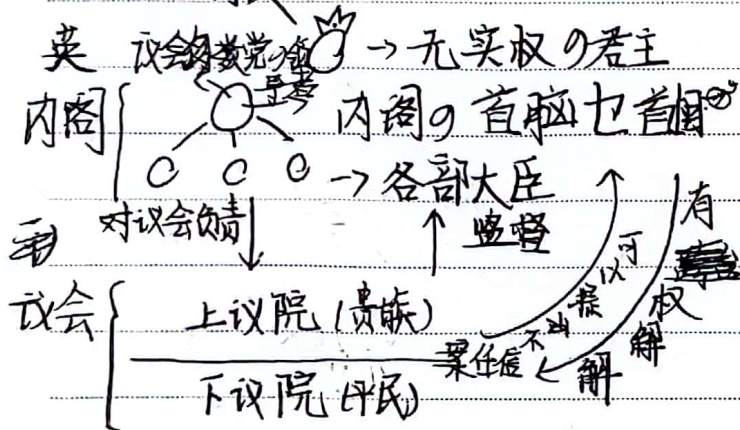 英 议会多数党の领导者 → 无实权の君主
内阁 内阁の首脑 首相
→ 各部大臣
对议会负责 监督
议会 上议院（贵族）
下议院（平民）
可以提出不信任案
有权解
解